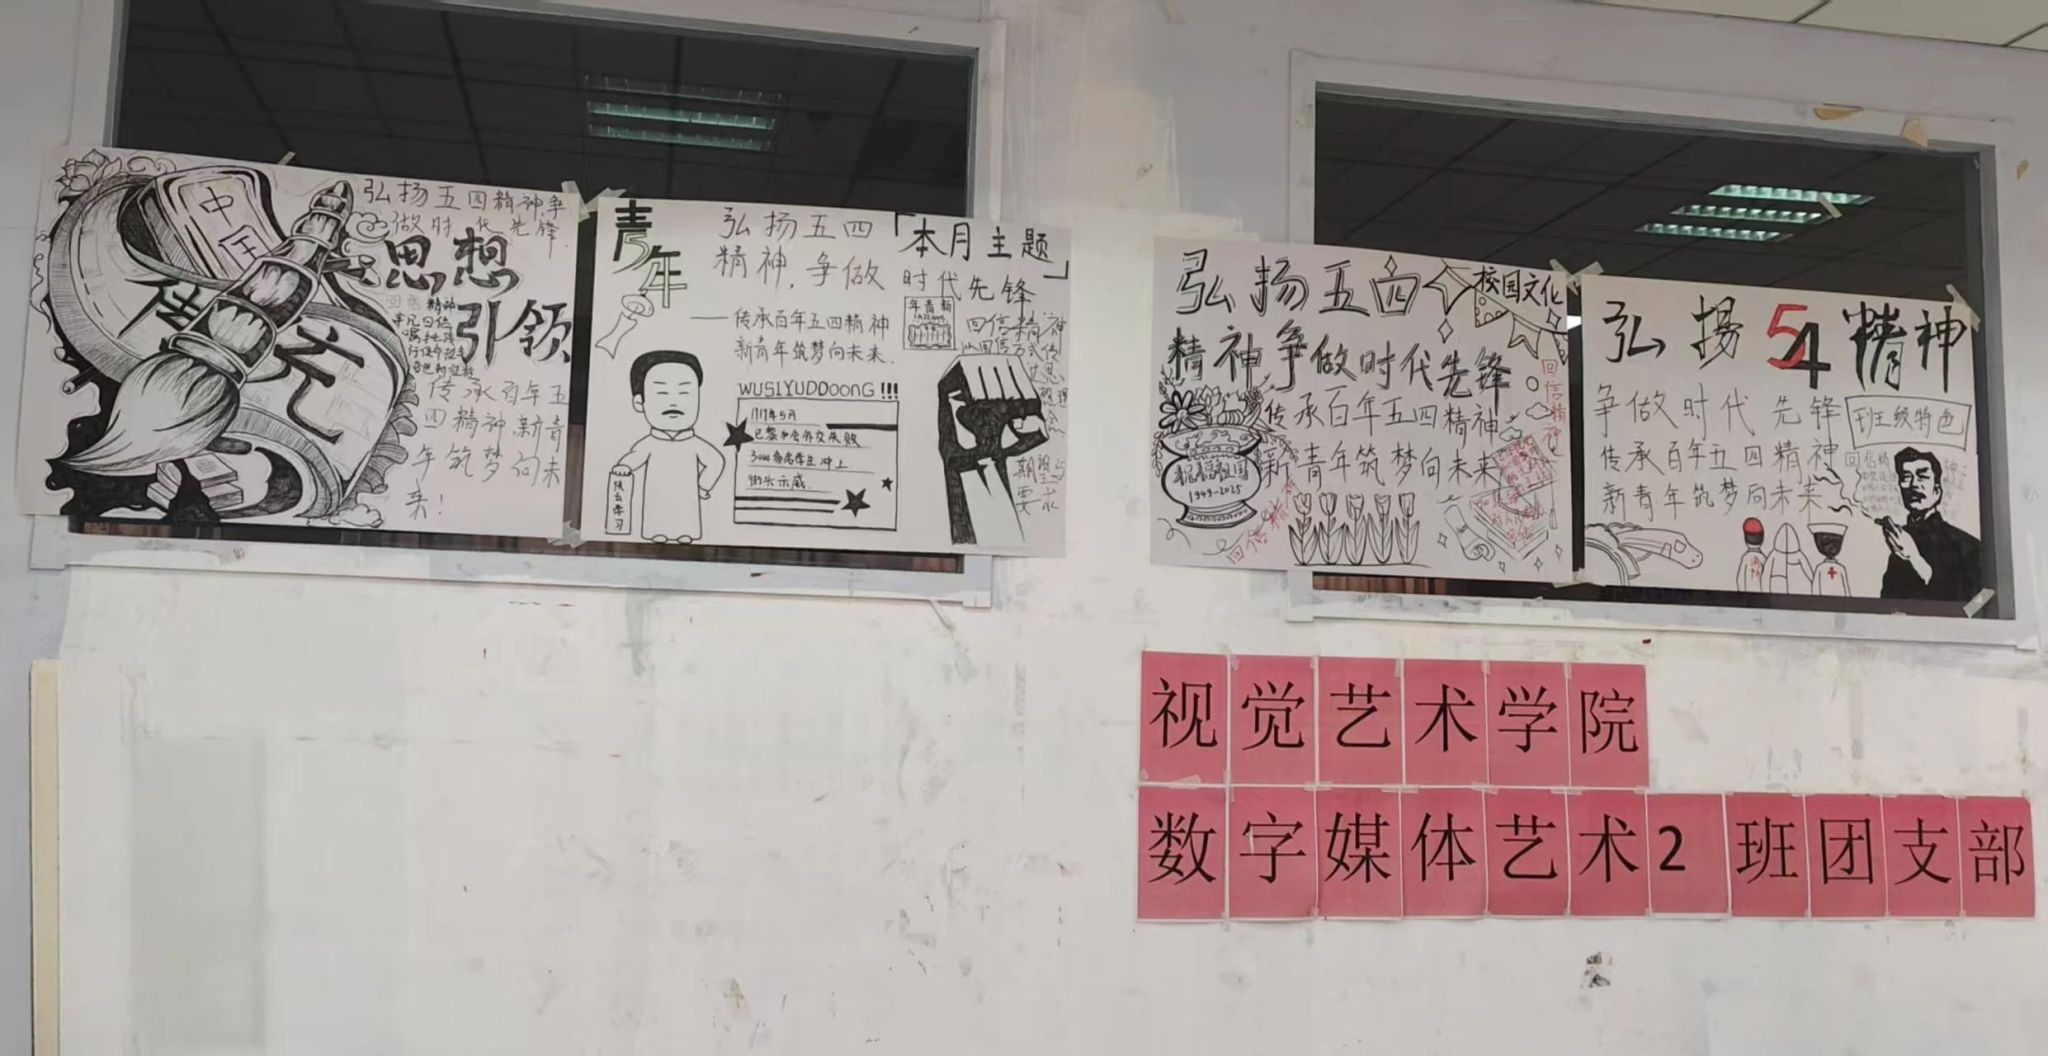 中国
传
元
弘扬五四精神,争
做时代先锋.
思想
引领
传承百年五
四精神,新青
年筑梦向未
来!
青年
弘扬五四
精神,争做
时代先锋
「本月主题」
——传承百年五四精神
新青年筑梦向未来.
新青年
WUSIYUDDoonG!!!
1919年5月
巴黎和会外交失败
3000多名学生冲上
街头示威.
快去学习
弘扬五四
精神争做时代先锋
校园文化
传承百年五四精神
新青年筑梦向未来
祝福祖国
1949-2025
回信精神
回信精神
弘揚54精神
争做时代先锋
传承百年五四精神
新青年筑梦向未来
班级特色
视觉艺术学院
数字媒体艺术2班团支部